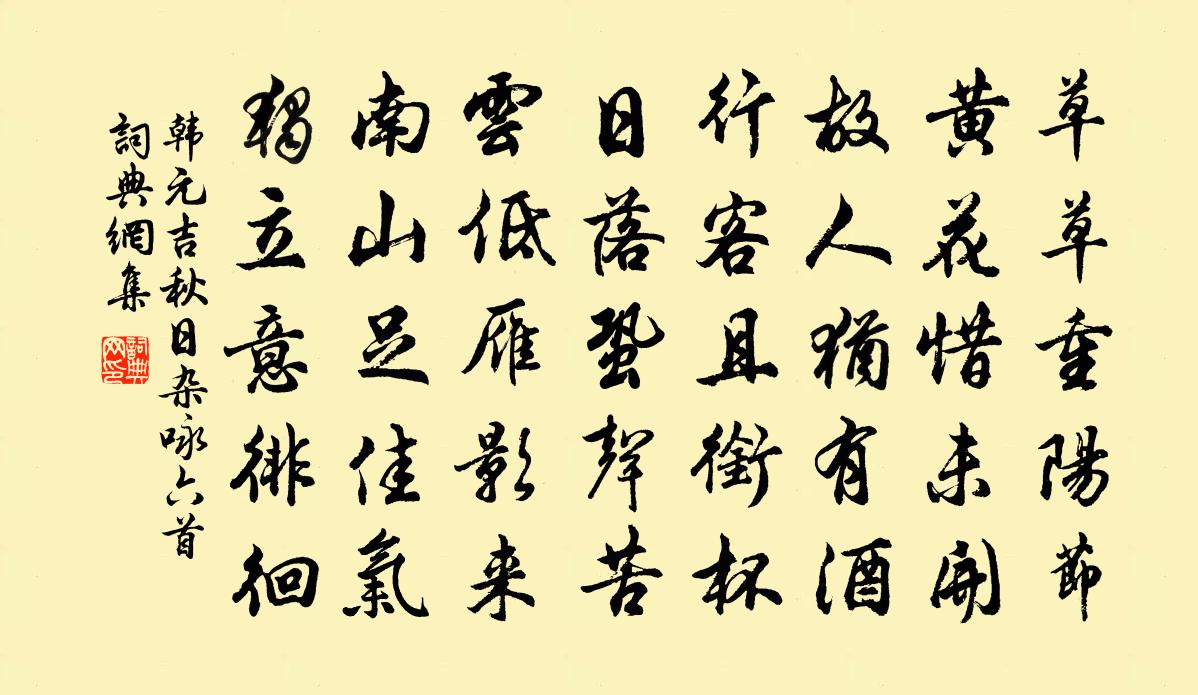 草草重陽節
黄花惜未開
故人猶有酒
行客且銜杯
日落蛩聲苦
雲低雁影来
南山足佳氣
獨立意徘徊
韩元吉秋日杂咏六首
詞典網集
詞典网印